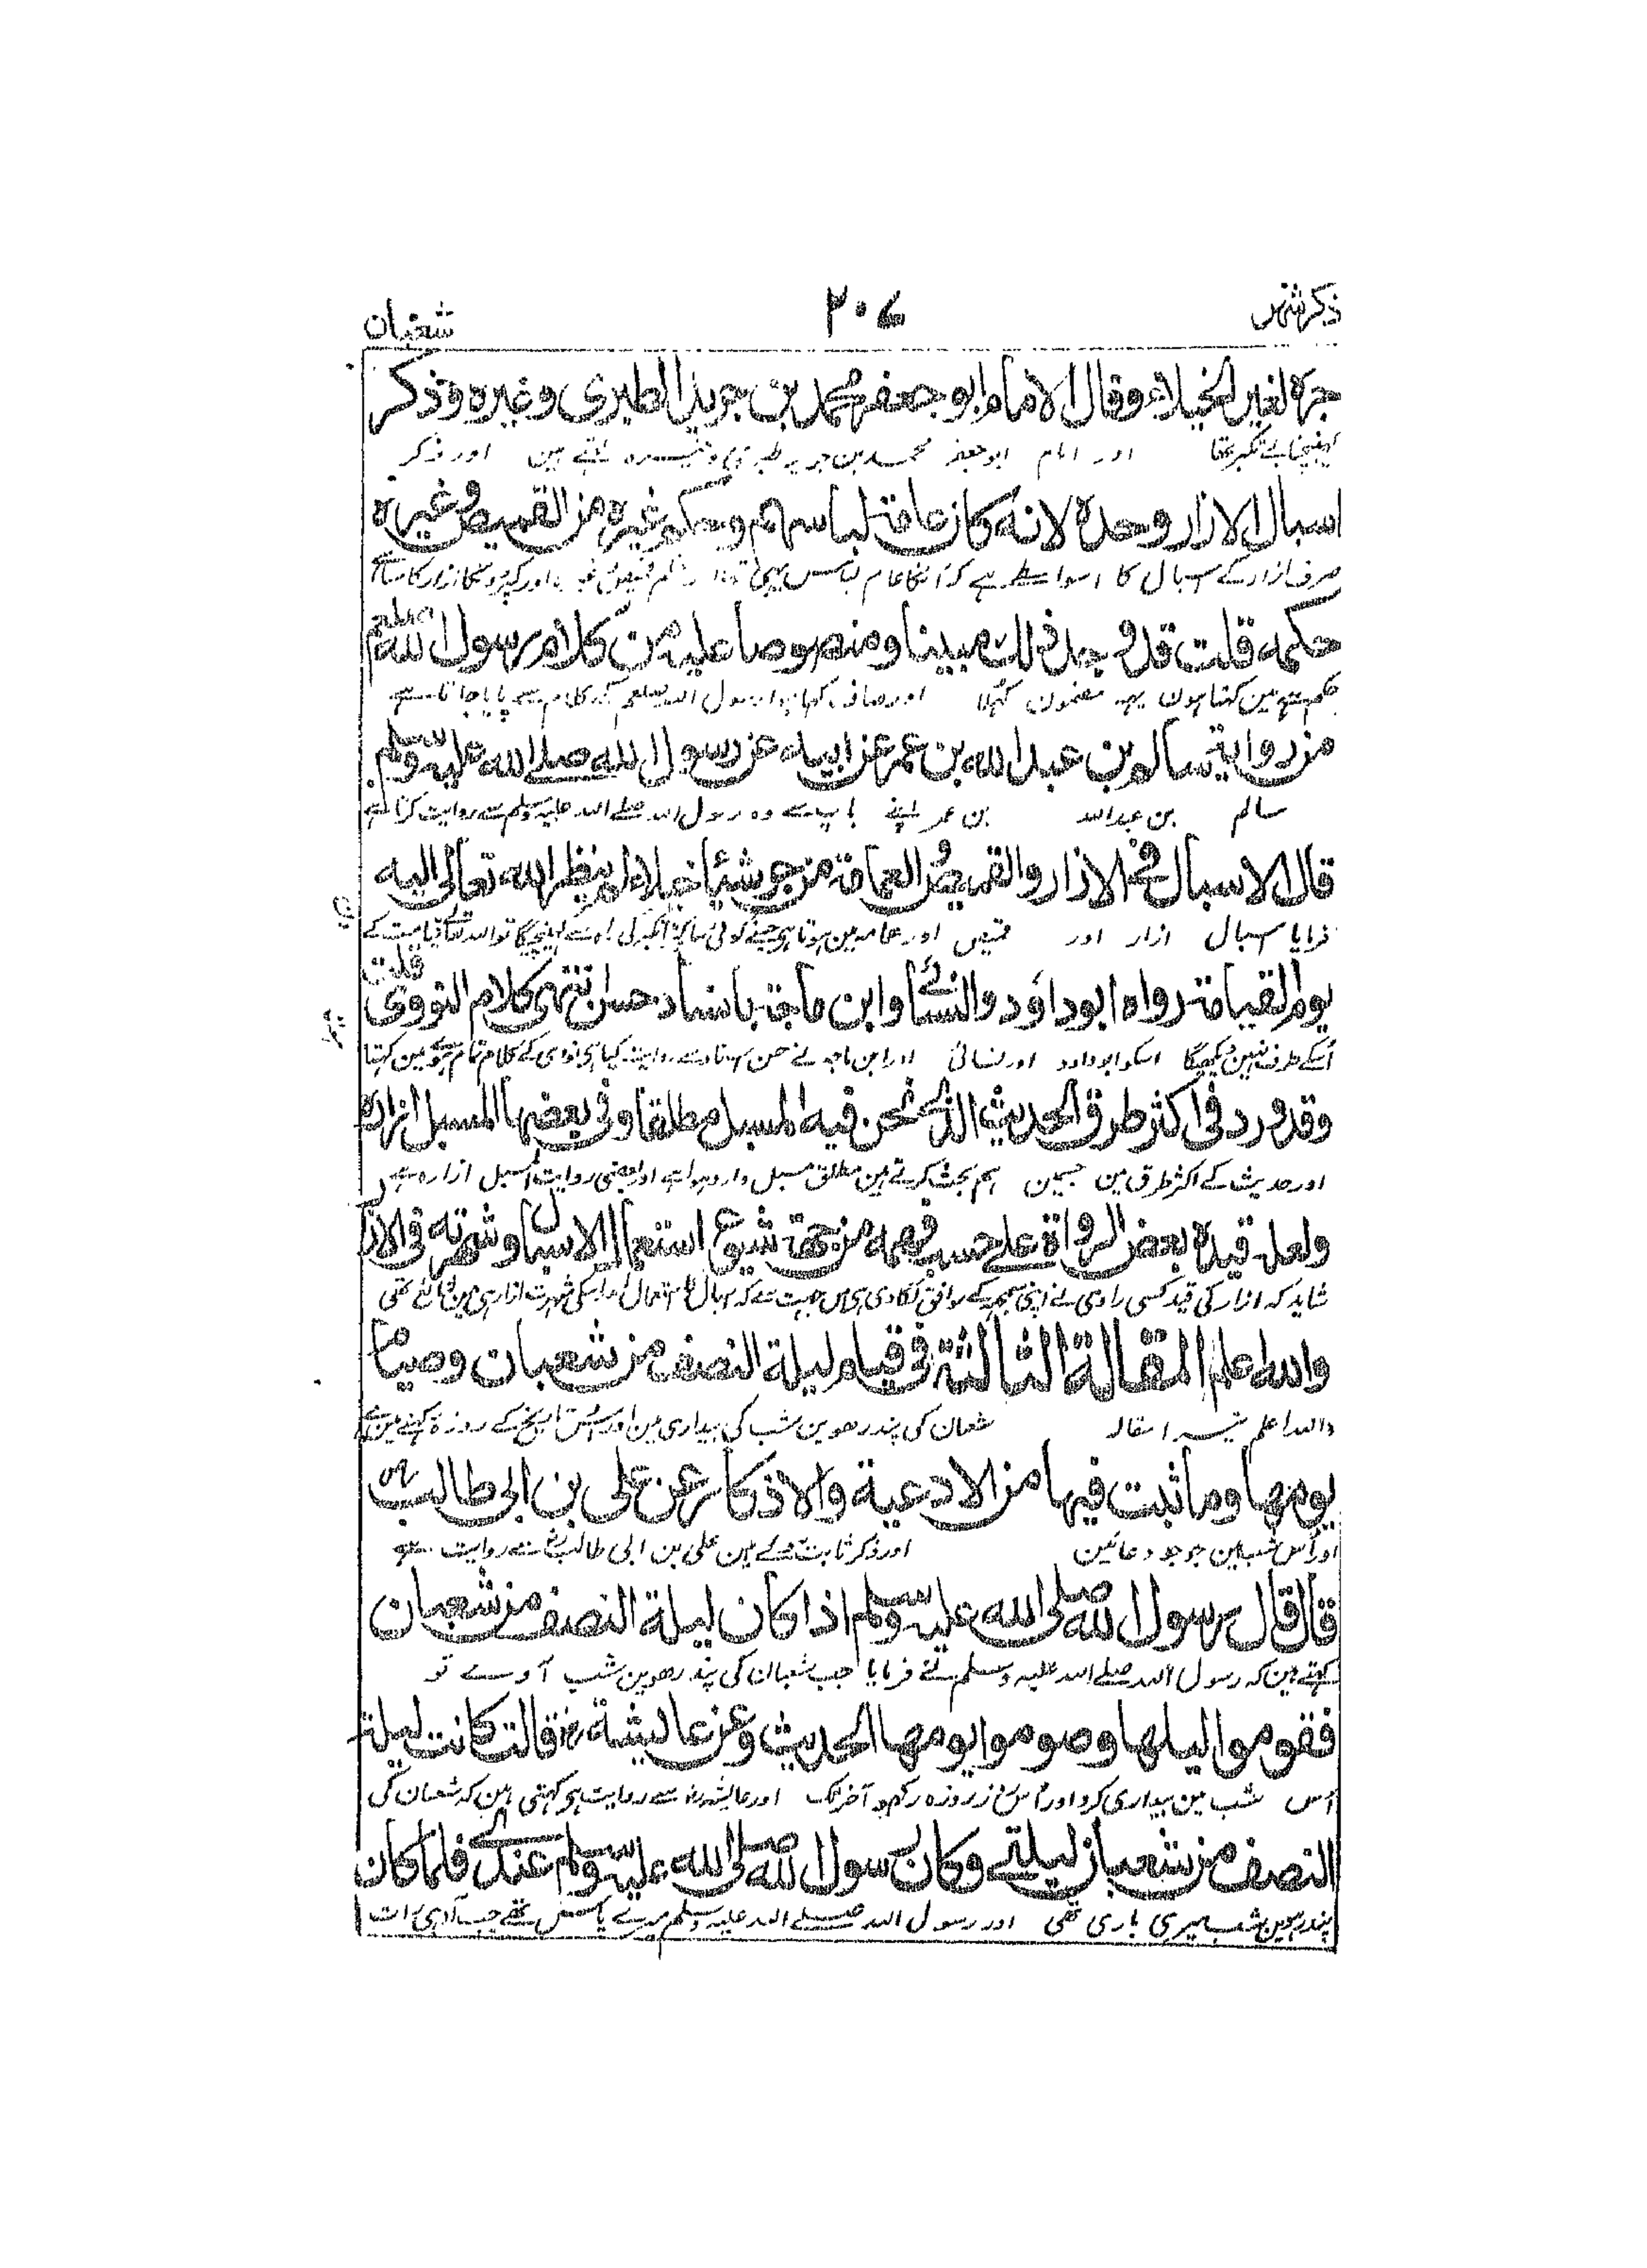 ذکر شہر ۲۰۷ شعبان
جره لغير الخيلاء وقال الامام ابو جعفر محمد بن جرير الطبري وغيره وذكر
اور امام ابو جعفر محمد بن جریر طبری وغیرہ کہتے ہین اور ذکر
اسبال الازار وحده لانه كان عامة لباسهم وحكم غيره من القميص وغيره
صرف ازار کے اسبال کا اسواسطے ہے کہ انکا عام لباس یہی تھا
حكمه قلت قد وجد ذلك مبينا ومنصوصا عليه من كلام رسول الله صلعم
حکم ہے مین کہتا ہون یہہ مضمون کھلا اور صاف رسول اللہ صلعم کے کلام سے پایا جاتا ہے
من رواية سالم بن عبد الله بن عمر عن ابيه عن رسول الله صلى الله عليه وسلم
سالم بن عبداللہ بن عمر اپنے باپ سے وہ رسول اللہ صلے اللہ علیہ وسلم سے روایت کرتا ہے
قال الاسبال في الازار والقميص والعمامة من جر شيئا خيلاء لم ينظر الله تعالى اليه
فرمایا اسبال ازار اور قمیص اور عمامہ مین ہوتا ہی
يوم القيامة رواه ابو داؤد والنسائي وابن ماجة باسناد حسن انتهى كلام النووي قلت
اُسکے طرف نہین دیکھیگا اسکو ابوداود اور نسائی اور ابن ماجہ نے حسن اسناد سے روایت کیا ہی نواوی کے کلام تمام ہوے مین کہتا
وقد ورد في اكثر طرق الحديث الذي نحن فيه المسبل مطلقا وفي بعضها المسبل ازاره
اور حدیث کے اکثر طرق مین جسمین ہم بحث کرتے ہین مطلق مسبل وارد ہوا ہے اور بعضی روایت مسبل ازارہ ہے
ولعله قيده بعض الرواة على حسب فهمه من جهة شيوع استعمال الاسبال وشهرته في الازار
شاید کہ ازار کی قید کسی راوی نے اپنی سمجھہ کے موافق لگا دی ہی اس جہت سے کہ اسبال کا استعمال اور اسکی شہرت ازار ہی مین شائع تھی
والله اعلم المقالة الثالثة في قيام ليلة النصف من شعبان وصيام
واللہ اعلم تیسرا مقالہ شعبان کی پندرھوین شب کی بیداری مین اور اُس تاریخ کے روزہ رکھنے مین ہے
يومها وما ثبت فيها من الادعية والاذكار عن علي بن ابي طالب رض
اور اُس شب مین جو جو دعائین اور ذکر ثابت ہوے ہین علی بن ابی طالب رض سے روایت ہے
قال قال رسول الله صلى الله عليه وسلم اذا كان ليلة النصف من شعبان
کہتے ہین کہ رسول اللہ صلے اللہ علیہ وسلم نے فرمایا جب شعبان کی پندرھوین شب آوے تو
فقوموا ليلها وصوموا يومها الحديث وعن عايشة رض قالت كانت ليلة
اُس شب مین بیداری کرو اور اُس روز روزہ رکھو آخر تک اور عایشہ رض سے روایت ہی کہتی ہین کہ شعبان کی
النصف من شعبان ليلتي وكان رسول الله صلى الله عليه وسلم عندي فلما كان
پندرہوین شب میری باری تھی اور رسول اللہ صلے اللہ علیہ وسلم میرے پاس تھے جب آدہی رات